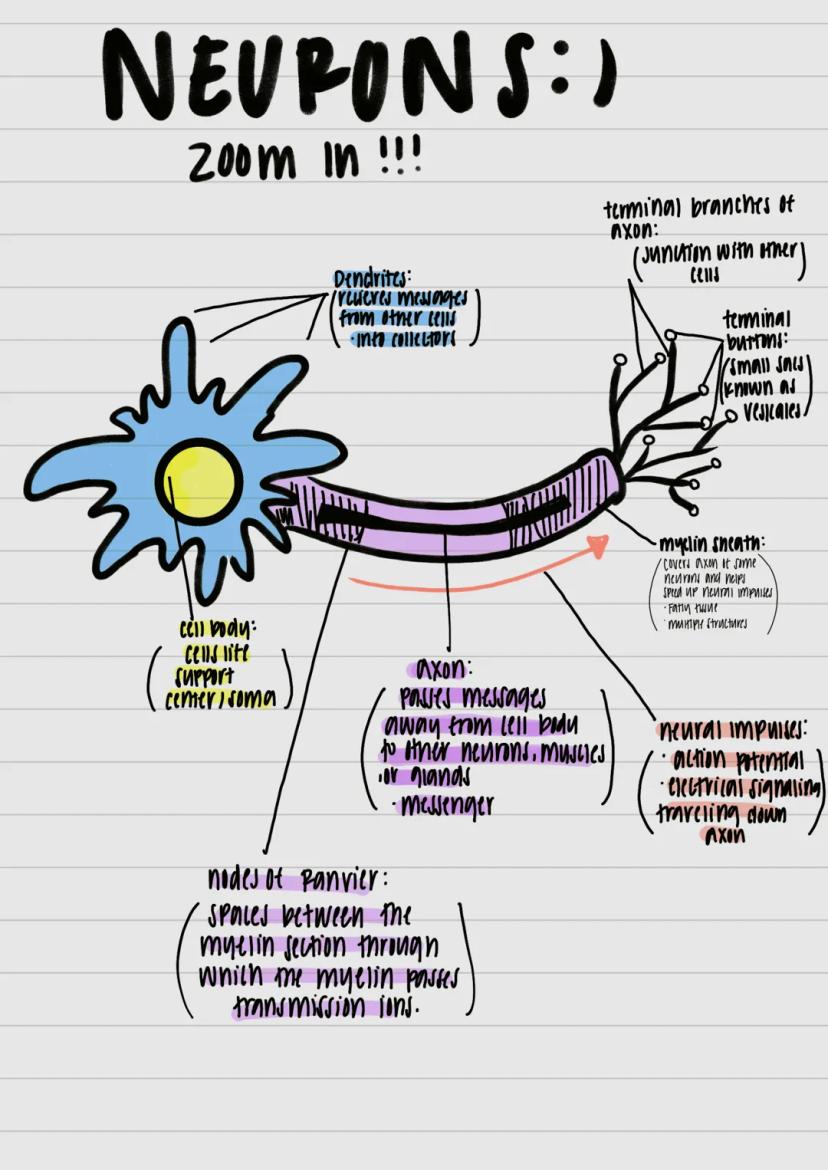 NEURONS:)
zoom in !!!
terminal branches of
axon:
(junction with other
cells)
Dendrites:
(recieves messages
from other cells
·into collectors)
terminal
buttons:
(small sacs
known as
vesicales)
myelin sheath:
(covers axon of some
neurons and helps
speed up neural impulses
· fatty tissue
· multiple structures)
cell body:
(cells life
support
center/soma)
axon:
(passes messages
away from cell body
to other neurons, muscles
or glands
·messenger)
neural impulses:
(· action potential
· electrical signaling
traveling down
axon)
nodes of Ranvier:
(spaces between the
myelin section through
which the myelin passes
transmission ions.)